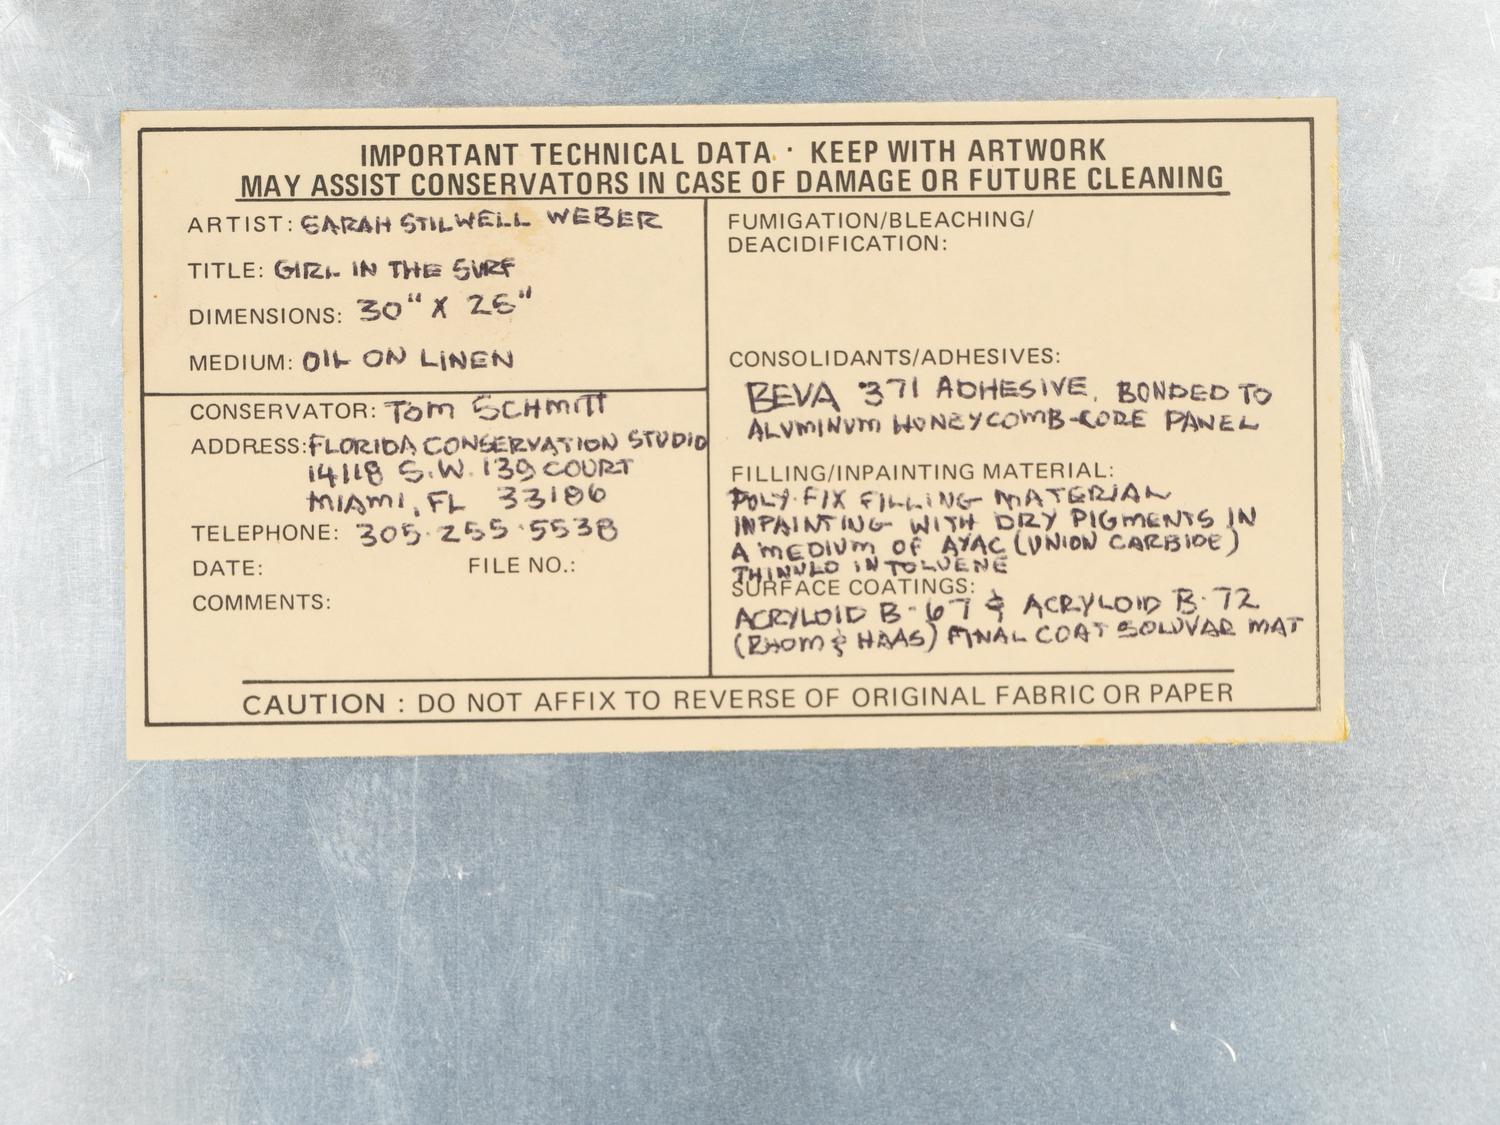 IMPORTANT TECHNICAL DATA · KEEP WITH ARTWORK
MAY ASSIST CONSERVATORS IN CASE OF DAMAGE OR FUTURE CLEANING
ARTIST: SARAH STILWELL WEBER
TITLE: GIRL IN THE SURF
DIMENSIONS: 30" X 26"
MEDIUM: OIL ON LINEN
CONSERVATOR: TOM SCHMITT
ADDRESS: FLORIDA CONSERVATION STUDIO
14118 S.W. 139 COURT
MIAMI, FL 33186
TELEPHONE: 305·255·5538
DATE: FILE NO.:
COMMENTS:
FUMIGATION/BLEACHING/
DEACIDIFICATION:
CONSOLIDANTS/ADHESIVES:
BEVA 371 ADHESIVE, BONDED TO
ALUMINUM HONEYCOMB-CORE PANEL
FILLING/INPAINTING MATERIAL:
POLY·FIX FILLING MATERIAL
INPAINTING WITH DRY PIGMENTS IN
A MEDIUM OF AYAC (UNION CARBIDE)
THINNED IN TOLUENE
SURFACE COATINGS:
ACRYLOID B-67 & ACRYLOID B-72
(RHOM & HAAS) FINAL COAT SOLUVAR MAT
CAUTION : DO NOT AFFIX TO REVERSE OF ORIGINAL FABRIC OR PAPER